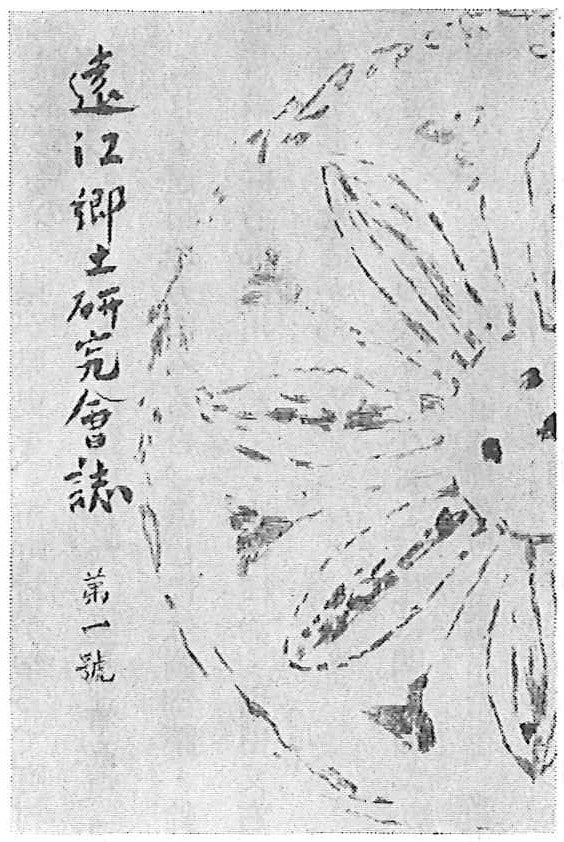 遠江郷土研究會誌
第一號